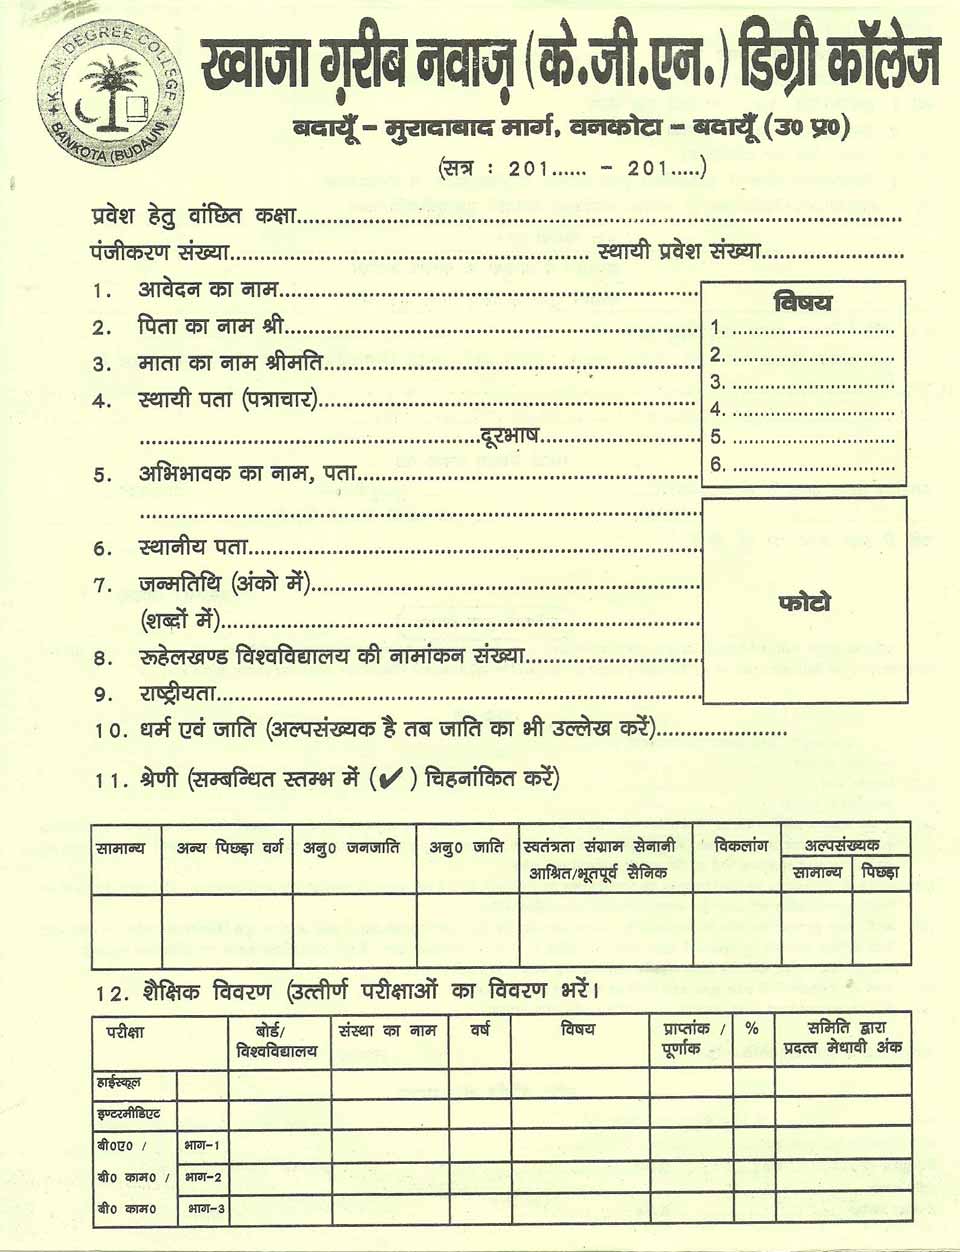 K.G.N. DEGREE COLLEGE
BANKOTA (BUDAUN)
ख्वाजा ग़रीब नवाज़ (के.जी.एन.) डिग्री कॉलेज
बदायूँ - मुरादाबाद मार्ग, वनकोटा - बदायूँ (उ0 प्र0)
(सत्र : 201...... - 201.....)
प्रवेश हेतु वांछित कक्षा....................
पंजीकरण संख्या.................... स्थायी प्रवेश संख्या....................
1. आवेदन का नाम....................
2. पिता का नाम श्री....................
3. माता का नाम श्रीमति....................
4. स्थायी पता (पत्राचार)....................
....................दूरभाष....................
5. अभिभावक का नाम, पता....................
....................
6. स्थानीय पता....................
7. जन्मतिथि (अंको में)....................
(शब्दों में)....................
8. रूहेलखण्ड विश्वविद्यालय की नामांकन संख्या....................
9. राष्ट्रीयता....................
विषय
1. ....................
2. ....................
3. ....................
4. ....................
5. ....................
6. ....................
फोटो
10. धर्म एवं जाति (अल्पसंख्यक है तब जाति का भी उल्लेख करें)....................
11. श्रेणी (सम्बन्धित स्तम्भ में (✔) चिहनांकित करें)
सामान्य अन्य पिछड़ा वर्ग अनु0 जनजाति अनु0 जाति स्वतंत्रता संग्राम सेनानी विकलांग अल्पसंख्यक
आश्रित/भूतपूर्व सैनिक सामान्य पिछड़ा
12. शैक्षिक विवरण (उत्तीर्ण परीक्षाओं का विवरण भरें।
परीक्षा बोर्ड/ संस्था का नाम वर्ष विषय प्राप्तांक / % समिति द्वारा
विश्वविद्यालय पूर्णाक प्रदत्त मेधावी अंक
हाईस्कूल
इण्टरमीडिएट
बी0ए0 / भाग-1
बी0 काम0 / भाग-2
बी0 काम0 भाग-3